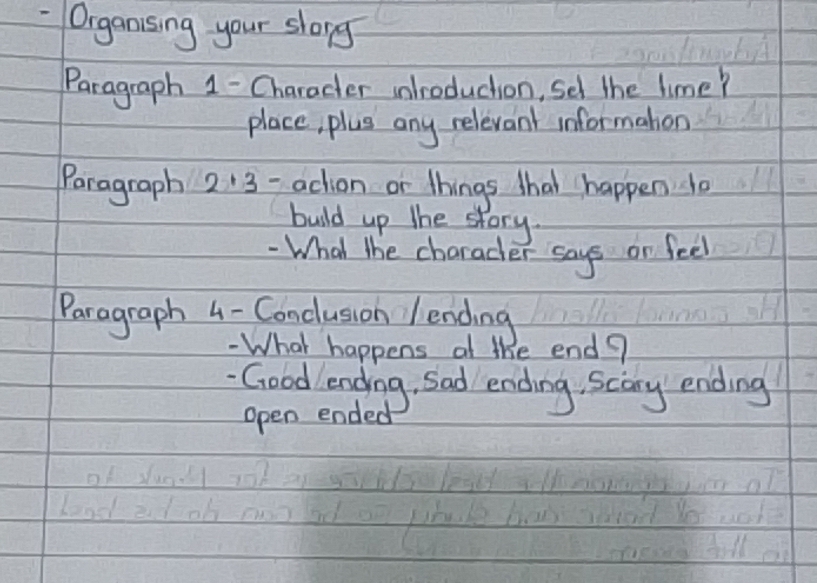 - Organising your story
Paragraph 1 - Character introduction, set the time?
place, plus any relevant information
Paragraph 2+3 - action or things that happen to
build up the story.
- What the character says or feel
Paragraph 4 - Conclusion / ending
- What happens at the end?
- Good ending, Sad ending, Scary ending
open ended